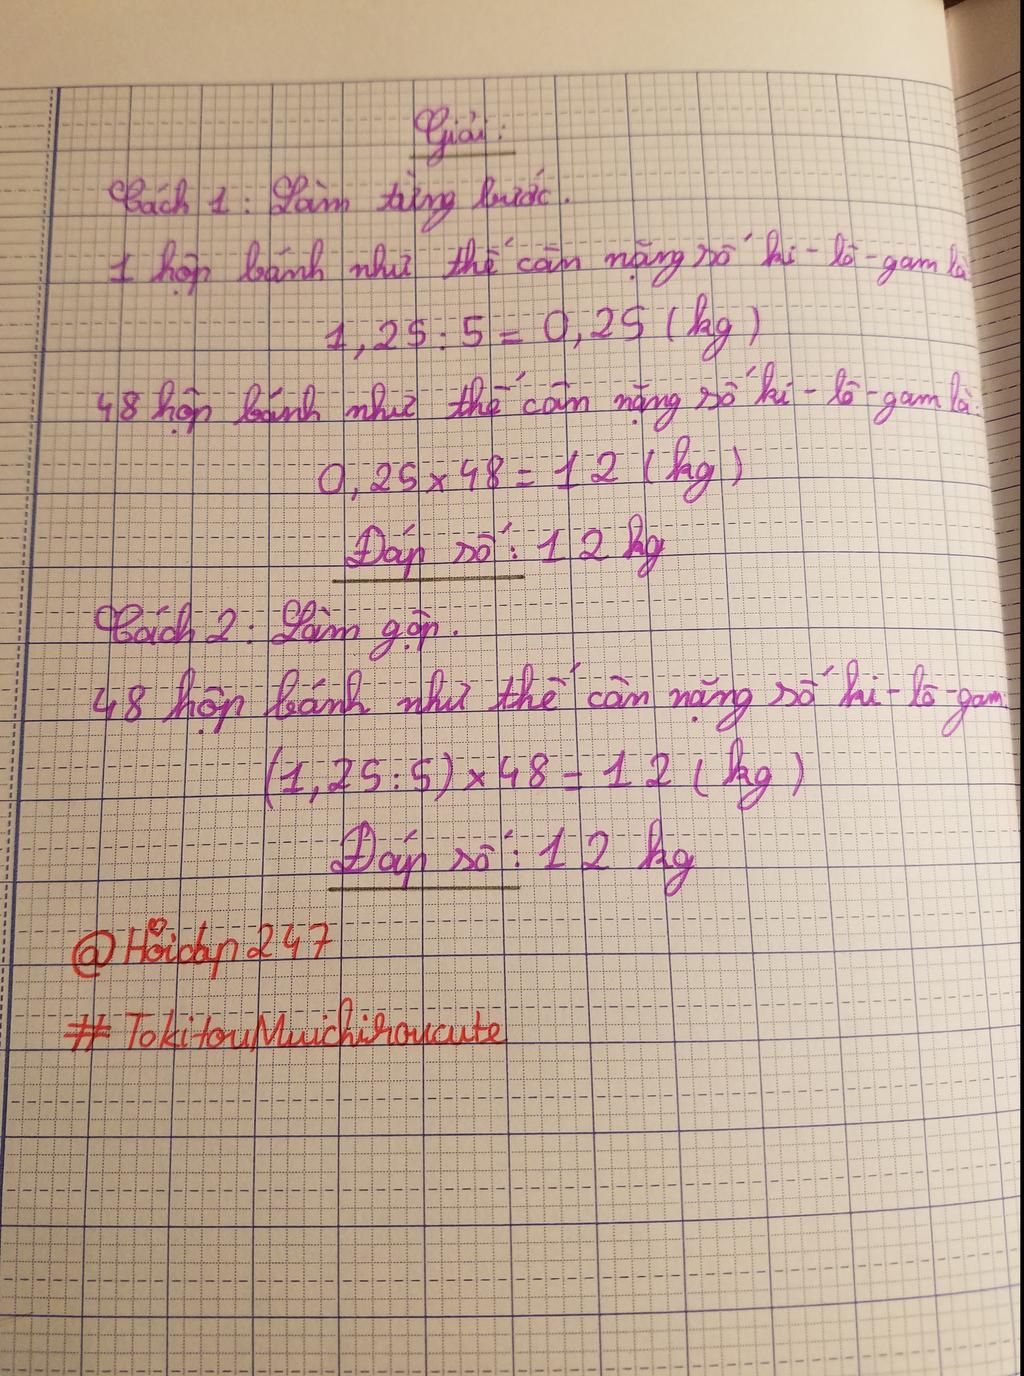 Giải:
Cách 1: Làm từng bước.
1 hộp bánh như thế cân nặng số ki-lô-gam là
1,25 : 5 = 0,25 (kg)
48 hộp bánh như thế cân nặng số ki-lô-gam là:
0,25 x 48 = 12 (kg)
Đáp số: 12 kg
Cách 2: Làm gộp.
48 hộp bánh như thế cân nặng số ki-lô-gam:
(1,25 : 5) x 48 = 12 (kg)
Đáp số: 12 kg
@Hỏidap247
#TokitouMuichiroucute